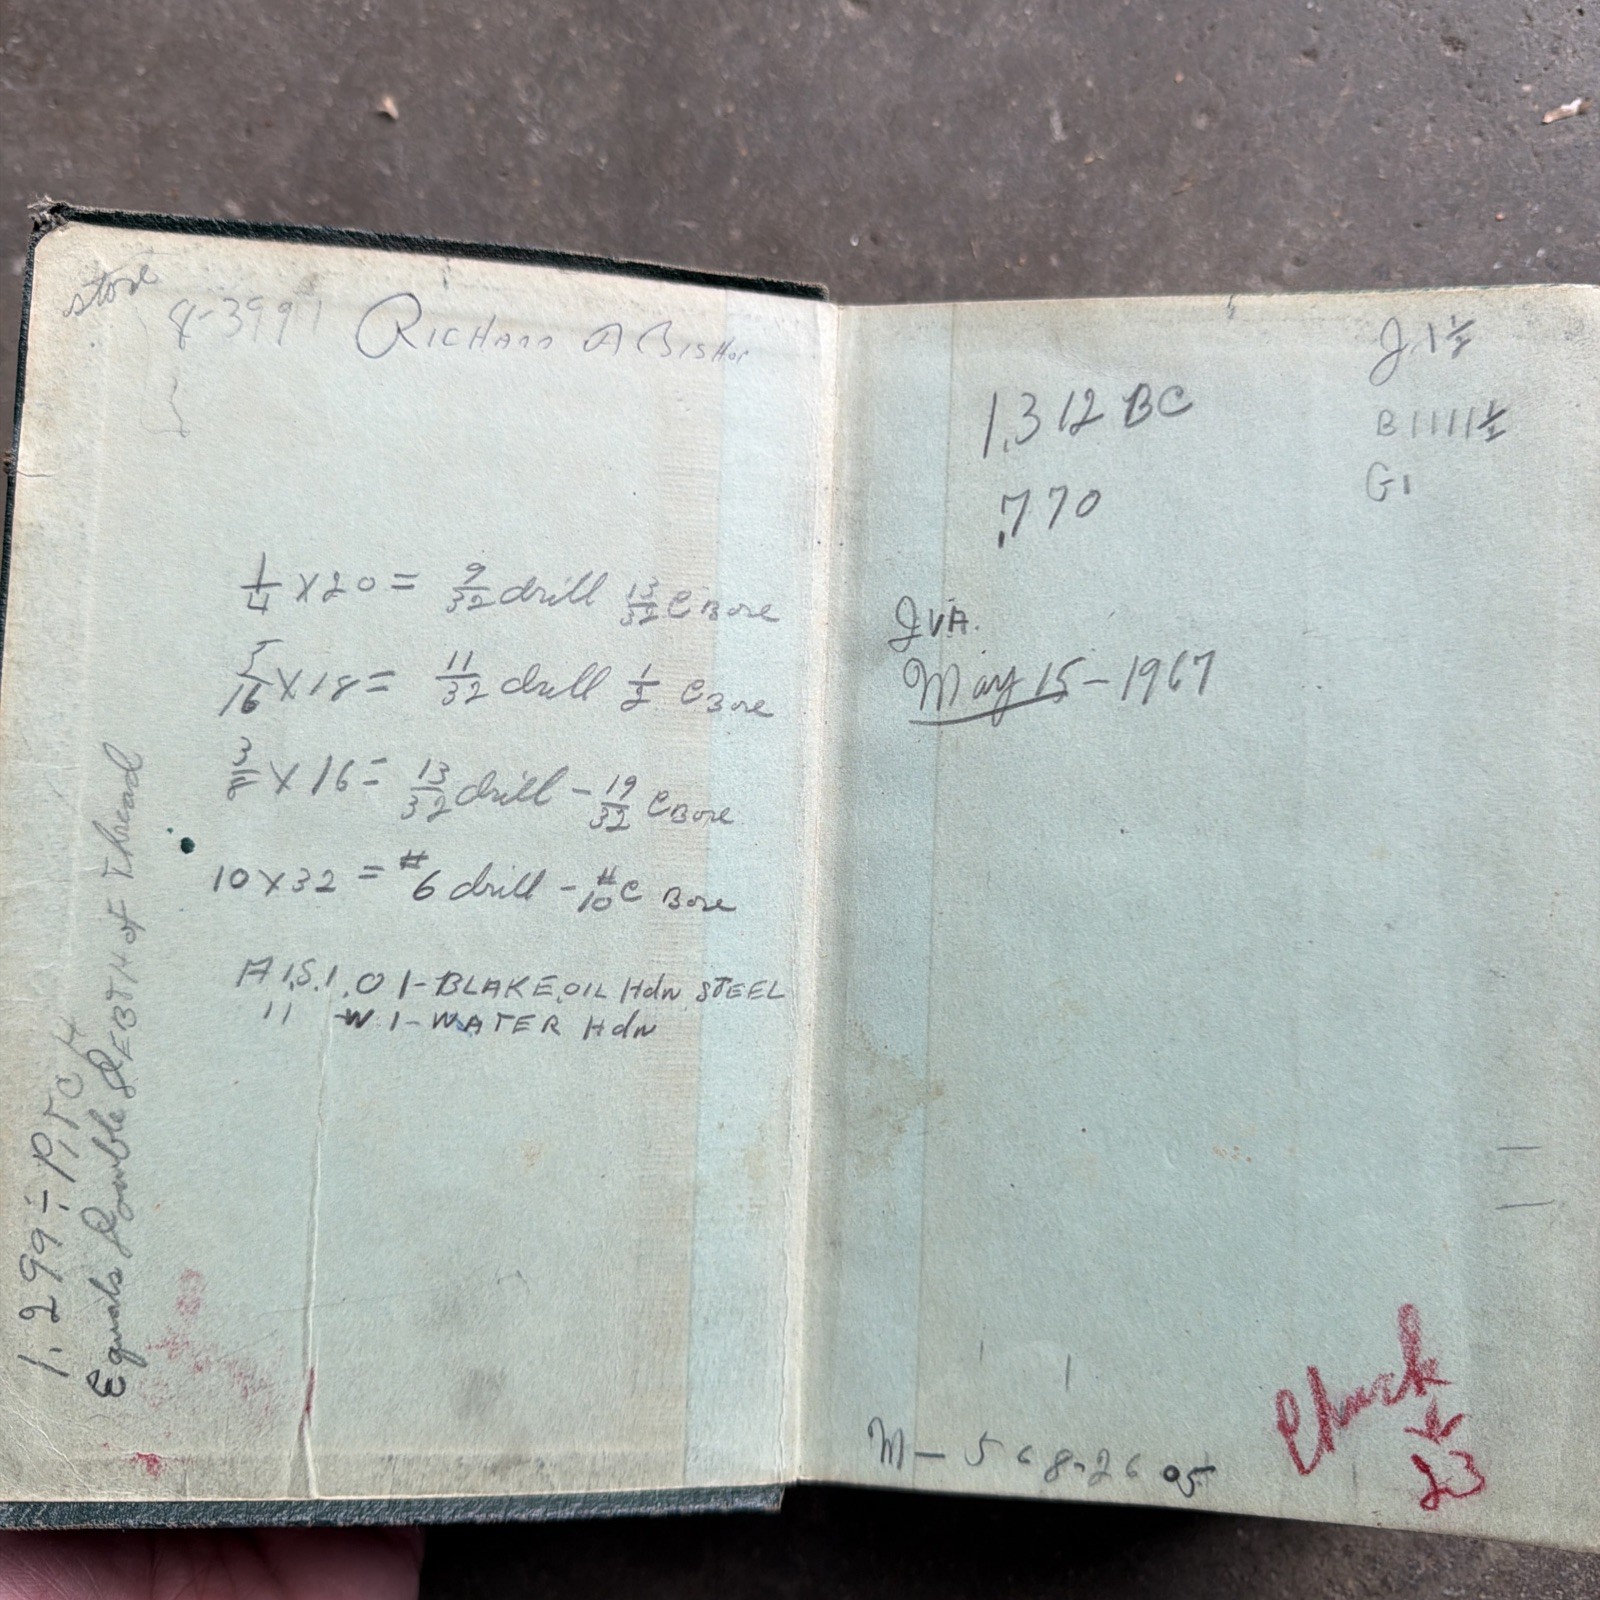 store
8-3991 RICHARD A BISHOP
1/4 X 20 = 9/32 drill 13/32 C Bore
5/16 X 18 = 11/32 drill 1/2 C Bore
3/8 X 16 = 13/32 drill - 19/32 C Bore
10 X 32 = #6 drill - #10 C Bore
A.I.S.I. O 1 - BLAKE OIL Hdn STEEL
11 W 1 - WATER Hdn
1.299 ÷ PITCH
Equals Double DEBTH of Thread
J 1 1/2
1.312 BC
B 1111 1/2
.770
G1
JVA.
May 15 - 1967
M - 568-2605
Chuck
23